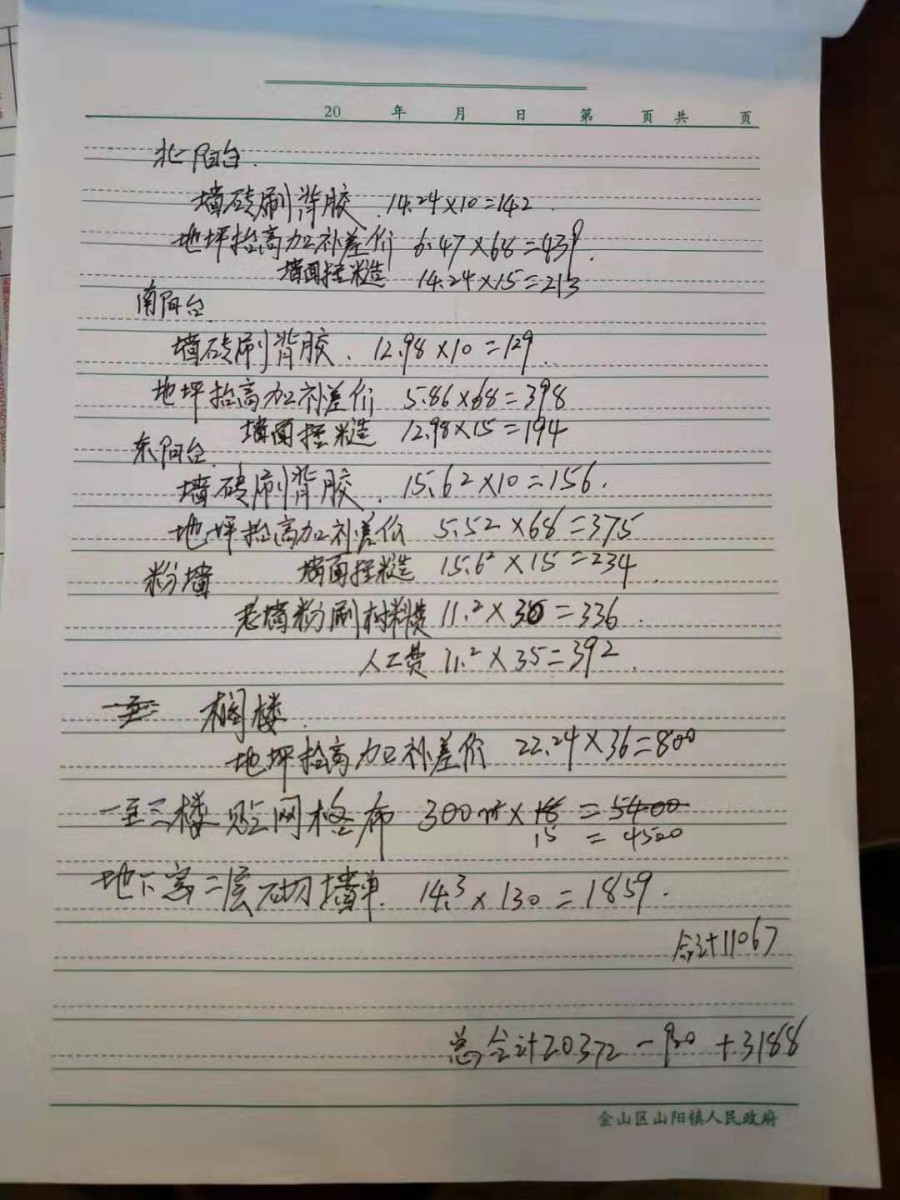 20 年 月 日 第 页 共 页
北阳台.
墙砖刷背胶 14.24×10=142
地坪抬高加补差价 6.47×68=439.
墙面拉糙 14.24×15=213
南阳台.
墙砖刷背胶. 12.98×10=129.
地坪抬高加补差价 5.86×68=398
墙面拉糙 12.98×15=194
东阳台.
墙砖刷背胶. 15.62×10=156.
地坪抬高加补差价 5.52×68=375
粉墙 墙面拉糙 15.6²×15=234.
老墙粉刷材料费 11.2×30=336.
人工费 11.²×35=392.
阁楼.
地坪抬高加补差价 22.24×36=800
一至三楼贴网格布 300m²×18=5400
15=4500
地下室二层砌墙单. 14.³×130=1859.
合计11067
总合计20372-930+3188
金山区山阳镇人民政府